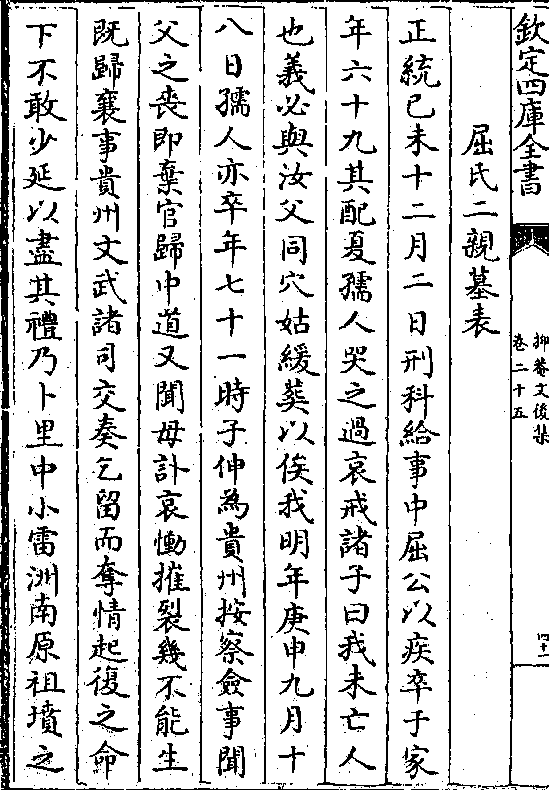 欽定四庫全書
抑菴文後集
卷二十五
四十一
屈氏二親墓表
正統己未十二月二日刑科給事中屈公以疾卒于家
年六十九其配夏孺人哭之過哀戒諸子曰我未亡人
也義必與汝父同穴姑緩葬以俟我明年庚申九月十
八日孺人亦卒年七十一時子伸為貴州按察僉事聞
父之喪即棄官歸中道又聞母訃哀慟摧裂幾不能生
既歸襄事貴州文武諸司交奏乞留而奪情起復之命
下不敢少延以盡其禮乃卜里中小雷洲南原祖墳之